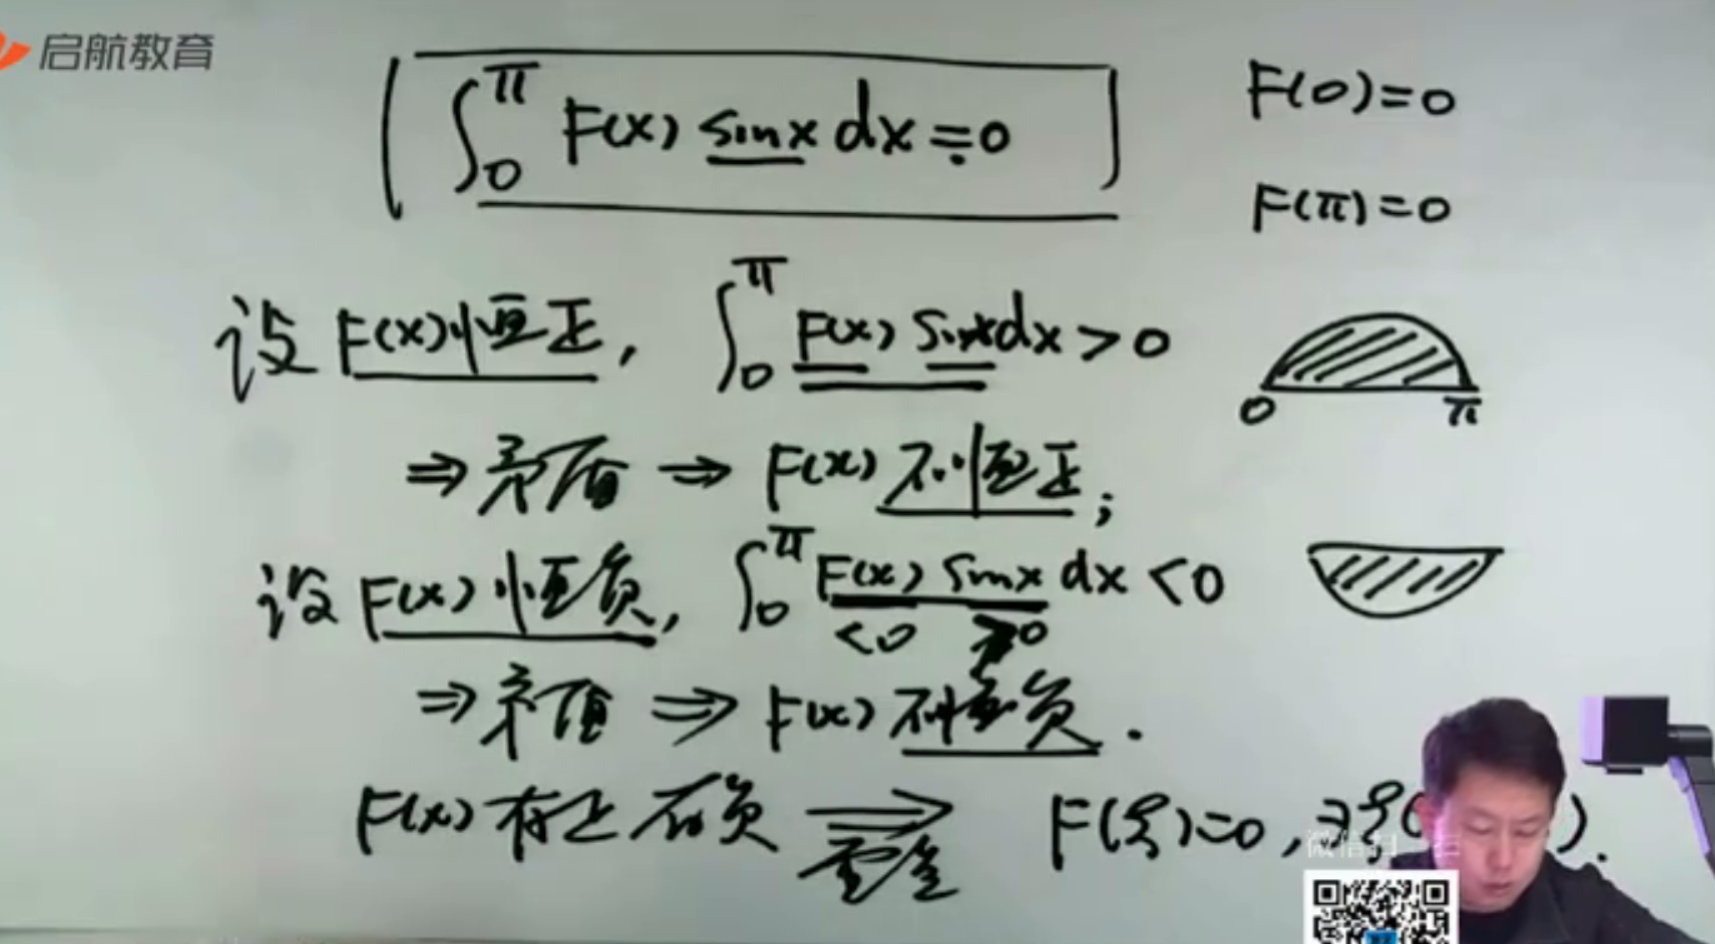 启航教育
∫₀^π F(x) sinx dx = 0
F(0)=0
F(π)=0
设 F(x)恒正, ∫₀^π F(x) sinx dx > 0
0 π
⇒ 矛盾 ⇒ F(x) 不恒正;
设 F(x) 恒负, ∫₀^π F(x) sinx dx < 0
<0 ≥0
⇒ 矛盾 ⇒ F(x) 不恒负.
F(x) 有正有负 ⇒ F(ξ)=0, ∃ξ( ).
零点
微信扫一